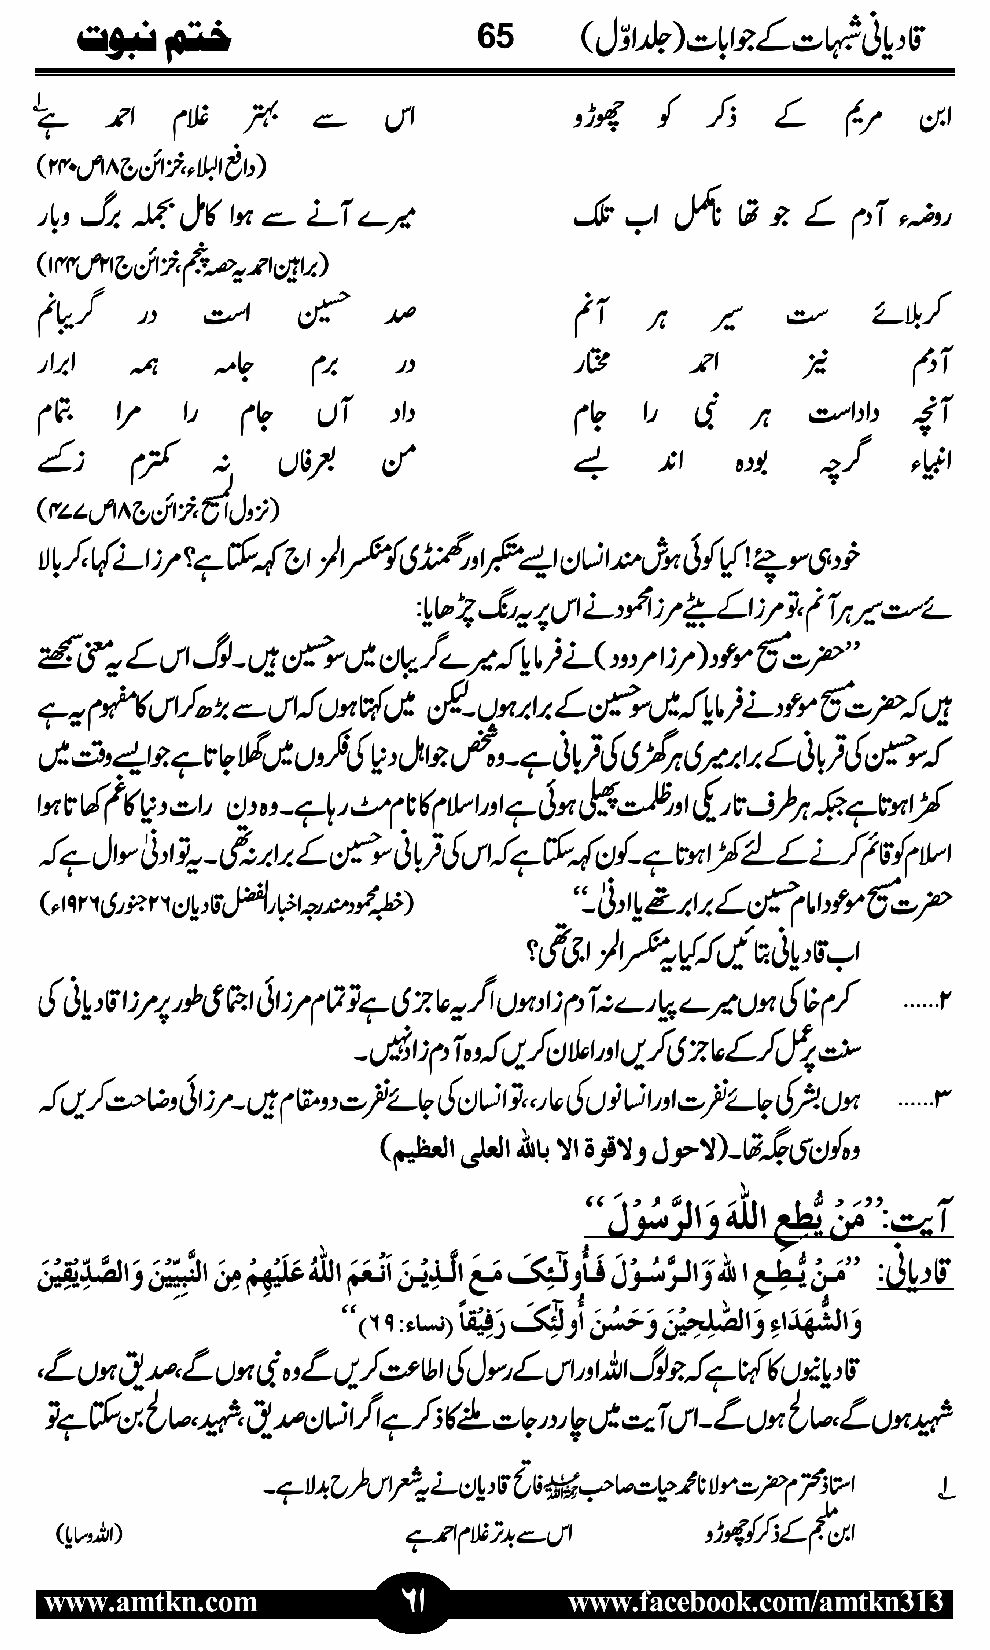 قادیانی شبہات کے جوابات (جلد اوّل) 65 ختم نبوت
ابن مریم کے ذکر کو چھوڑو اس سے بہتر غلام احمد ہے۱
(دافع البلاء، خزائن ج۱۸ ص۲۴۰)
روضۂ آدم کہ جو تھا نامکمل اب تلک میرے آنے سے ہوا کامل بجملہ برگ وبار
(براہین احمدیہ حصہ پنجم، خزائن ج۲۱ ص۱۴۴)
کربلائے ست سیر ہر آنم صد حسین است در گریبانم
آدمم نیز احمد مختار در برم جامہ ہمہ ابرار
آنچہ داداست ہر نبی را جام داد آں جام را مرا بتمام
انبیاء گرچہ بودہ اند بسے من بعرفاں نہ کمترم زکسے
(نزول المسیح، خزائن ج۱۸ ص۴۷۷)
خود ہی سوچئے! کیا کوئی ہوش مند انسان ایسے متکبر اور گھمنڈی کو منکسر المزاج کہہ سکتا ہے؟ مرزا نے کہا، کربلا
ئے ست سیر ہر آنم، تو مرزا کے بیٹے مرزا محمود نے اس پر یہ رنگ چڑھایا:
”حضرت مسیح موعود (مرزا مردود) نے فرمایا کہ میرے گریبان میں سو حسین ہیں۔ لوگ اس کے یہ معنی سمجھتے
ہیں کہ حضرت مسیح موعود نے فرمایا کہ میں سو حسین کے برابر ہوں۔ لیکن میں کہتا ہوں کہ اس سے بڑھ کر اس کا مفہوم یہ ہے
کہ سو حسین کی قربانی کے برابر میری ہر گھڑی کی قربانی ہے۔ وہ شخص جو اہل دنیا کی فکروں میں گھلا جاتا ہے جو ایسے وقت میں
کھڑا ہوتا ہے جبکہ ہر طرف تاریکی اور ظلمت پھیلی ہوئی ہے اور اسلام کا نام مٹ رہا ہے۔ وہ دن رات دنیا کا غم کھاتا ہوا
اسلام کو قائم کرنے کے لئے کھڑا ہوتا ہے۔ کون کہہ سکتا ہے کہ اس کی قربانی سو حسین کے برابر نہ تھی۔ یہ تو ادنیٰ سوال ہے کہ
حضرت مسیح موعود امام حسین کے برابر تھے یا ادنیٰ۔“ (خطبہ محمود مندرجہ اخبار الفضل قادیان ۲۶ جنوری ۱۹۲۶ء)
اب قادیانی بتائیں کہ کیا یہ منکسر المزاجی تھی؟
۲...... کرم خاکی ہوں میرے پیارے نہ آدم زاد ہوں اگر یہ عاجزی ہے تو تمام مرزائی اجتماعی طور پر مرزا قادیانی کی
سنت پر عمل کر کے عاجزی کریں اور اعلان کریں کہ وہ آدم زاد نہیں۔
۳...... ہوں بشر کی جائے نفرت اور انسانوں کی عار،، تو انسان کی جائے نفرت دو مقام ہیں۔ مرزائی وضاحت کریں کہ
وہ کون سی جگہ تھا۔ (لاحول ولا قوۃ الا باللہ العلی العظیم)
آیت: ”مَنْ یُّطِعِ اللّٰہَ وَالرَّسُوْلَ“
قادیانی: ”مَنْ یُّطِعِ اللّٰہَ وَالرَّسُوْلَ فَأُولٰٓئِکَ مَعَ الَّذِیْنَ اَنْعَمَ اللّٰہُ عَلَیْہِمْ مِنَ النَّبِیّیْنَ وَالصِّدِّیْقِیْنَ
وَالشُّہَدَاءِ وَالصّٰلِحِیْنَ وَحَسُنَ أُولٰٓئِکَ رَفِیْقًا (نساء:۶۹)“
قادیانیوں کا کہنا ہے کہ جو لوگ اللہ اور اس کے رسول کی اطاعت کریں گے وہ نبی ہوں گے، صدیق ہوں گے،
شہید ہوں گے، صالح ہوں گے۔ اس آیت میں چار درجات ملنے کا ذکر ہے اگر انسان صدیق، شہید، صالح بن سکتا ہے تو
۱ استاذ محترم حضرت مولانا محمد حیات صاحب رحمۃ اللہ علیہ فاتح قادیان نے یہ شعر اس طرح بدلا ہے۔
ابن ملجم کے ذکر کو چھوڑو اس سے بدتر غلام احمد ہے (اللہ وسایا)
www.amtkn.com ۶۱ www.facebook.com/amtkn313